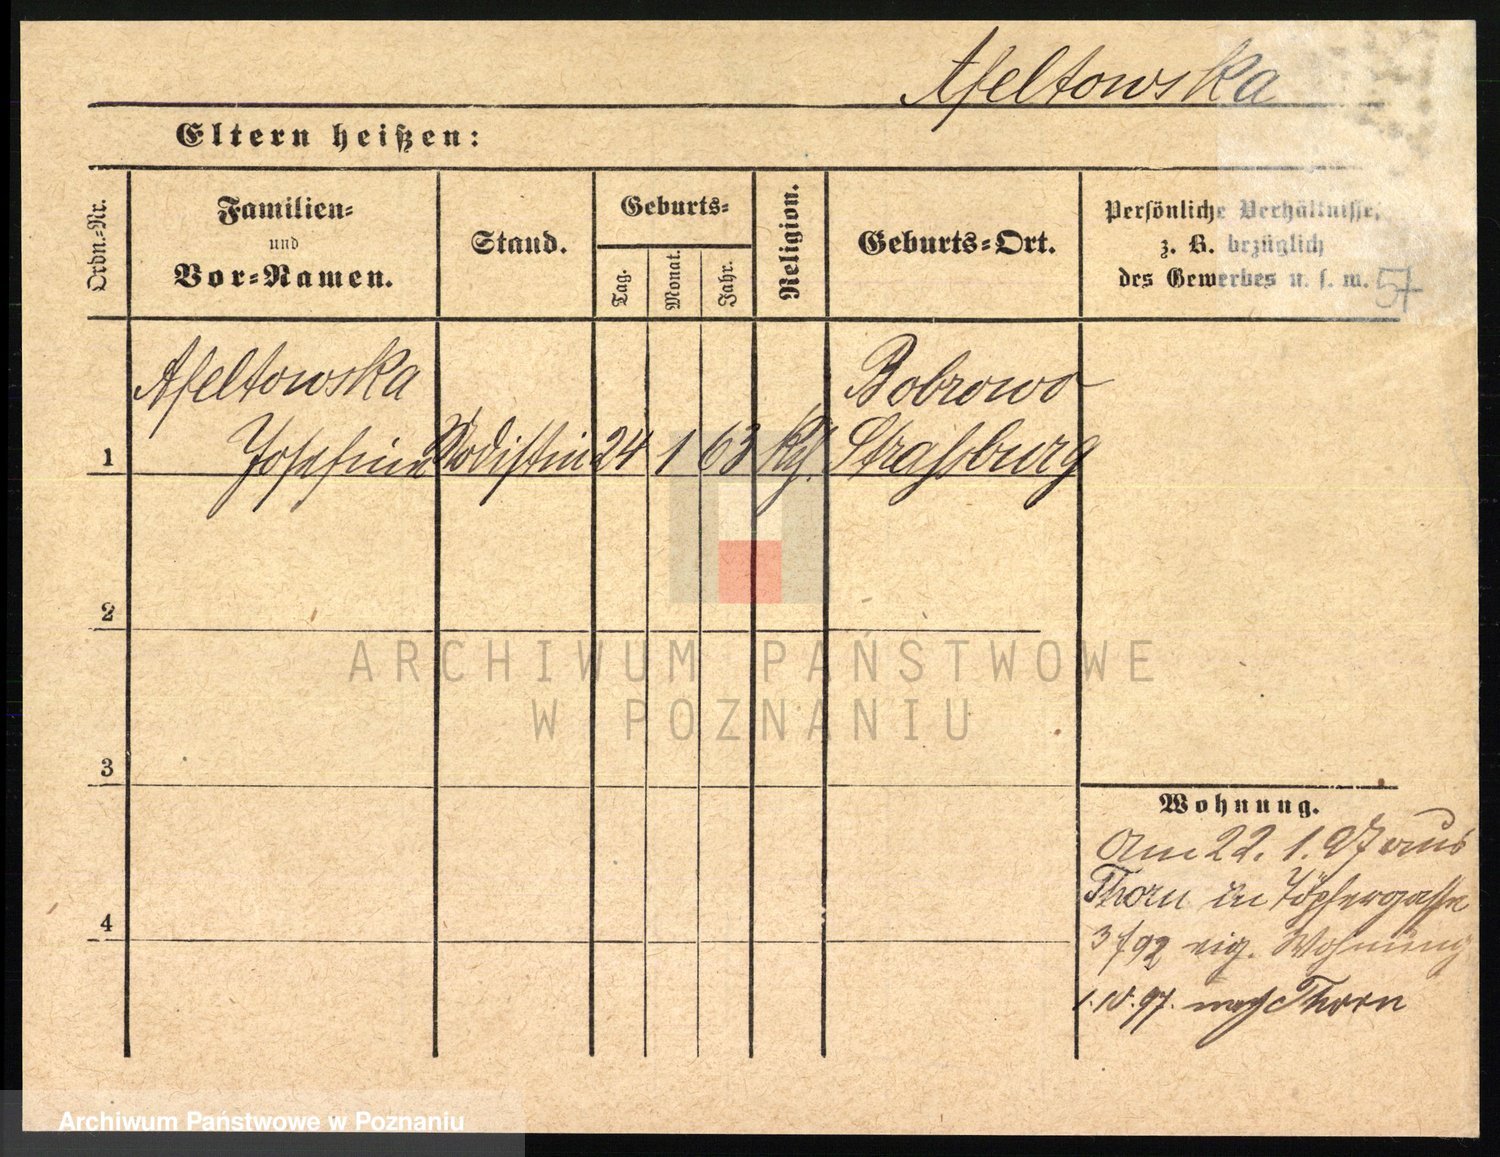 Afeltowska
Eltern heißen:
Ordn.-Nr.
Familien-
und
Vor-Namen.
Stand.
Geburts-
Tag.
Monat.
Jahr.
Religion.
Geburts-Ort.
Persönliche Verhältnisse,
z. B. bezüglich
des Gewerbes u. s. w. 57
Afeltowska
Bobrowo
1 Josefine Modistin 24 1 63 kth. Strassburg
2
ARCHIWUM PAŃSTWOWE
W POZNANIU
3
Wohnung.
Am 22. 1. 97 aus
Thorn in Töpfergasse
3/92 eig. Wohnung
4
1. IV. 97. nach Thorn
Archiwum Państwowe w Poznaniu